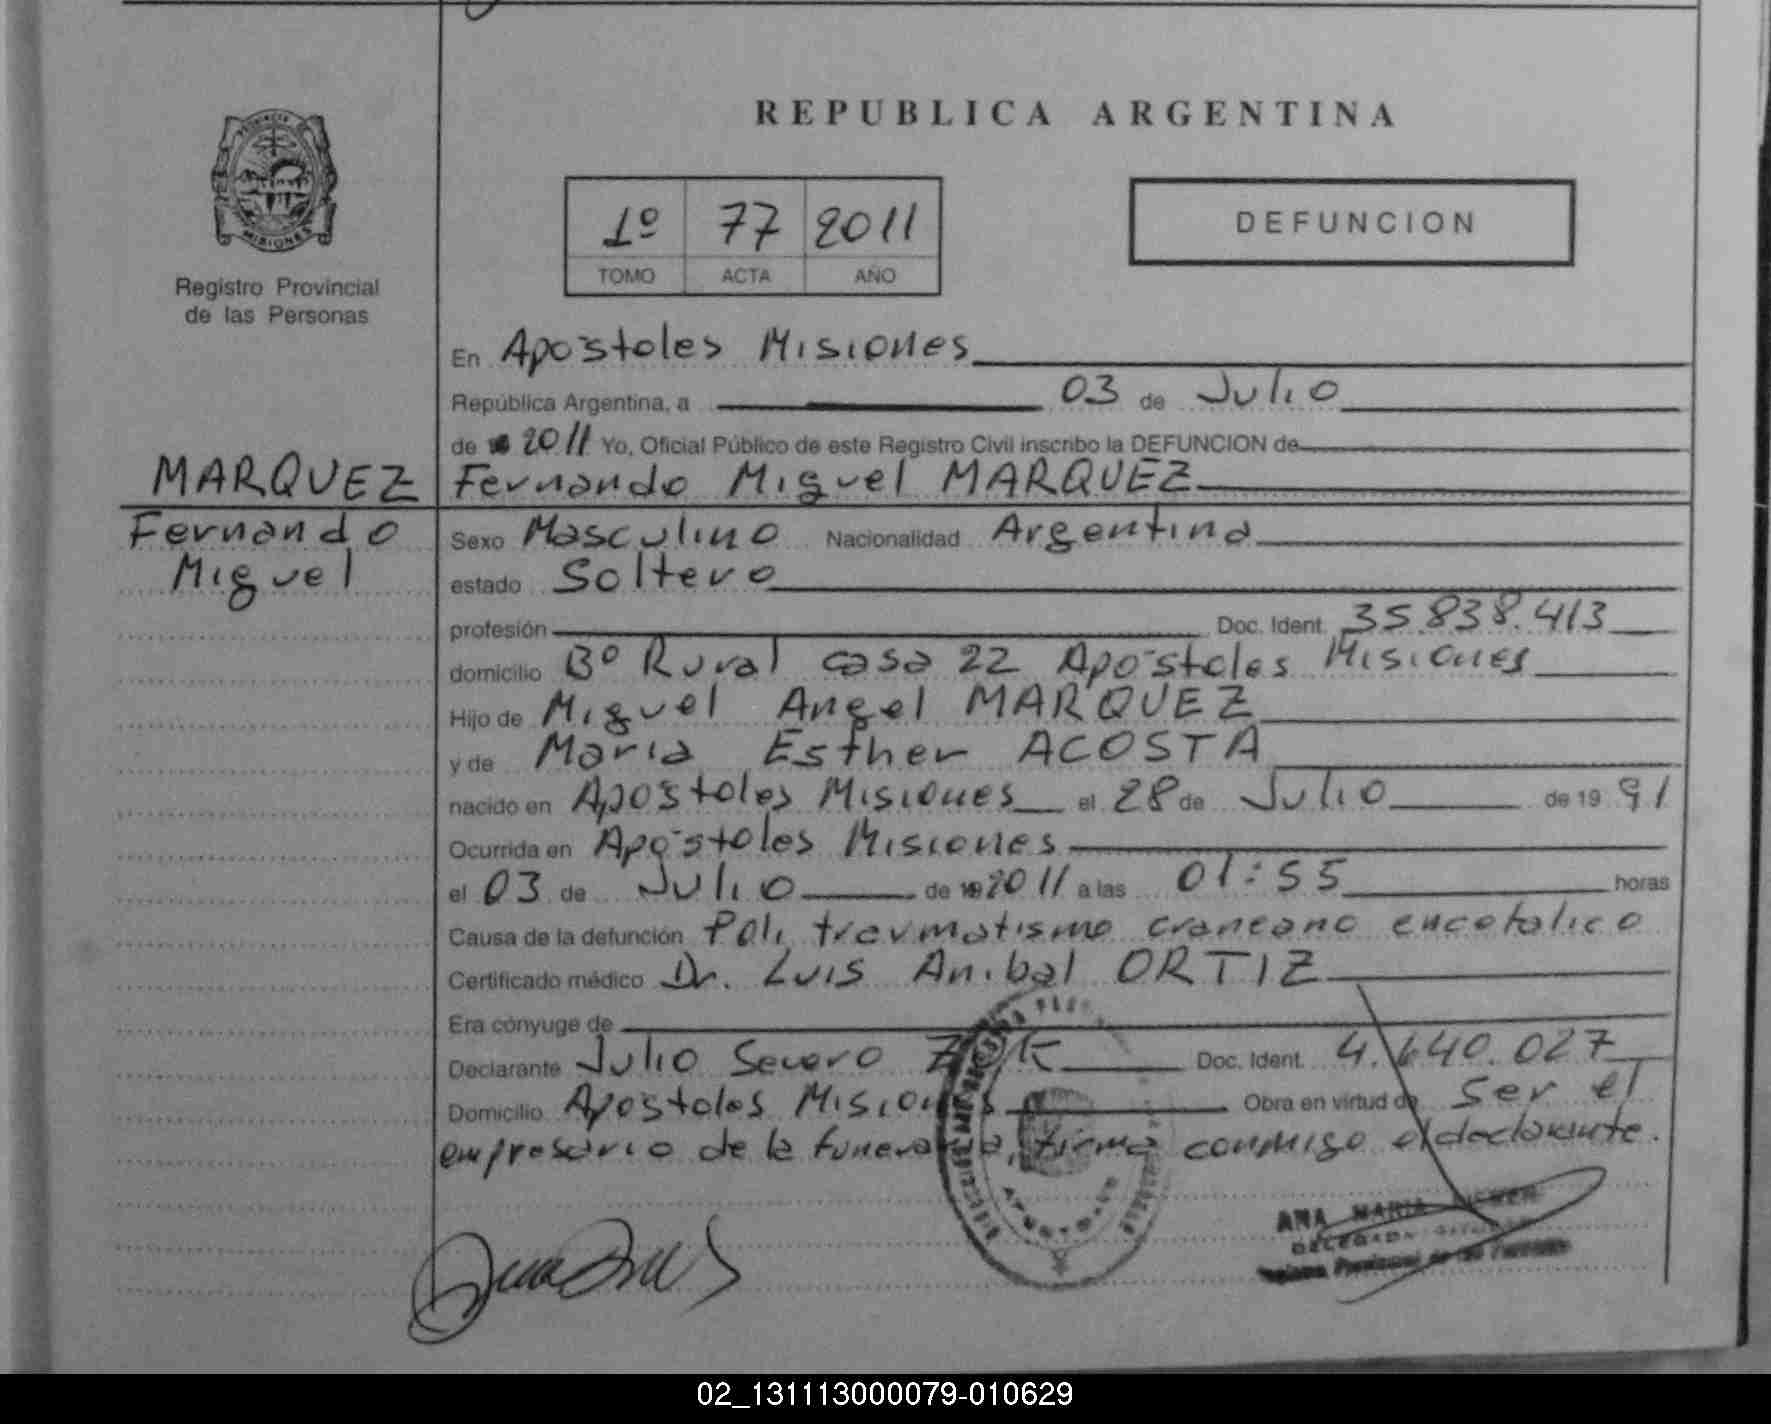 REPUBLICA ARGENTINA
PROVINCIA DE
MISIONES
Registro Provincial
de las Personas
1º 77 2011
TOMO ACTA AÑO
DEFUNCION
En Apóstoles Misiones
República Argentina, a 03 de Julio
de 2011 Yo, Oficial Público de este Registro Civil inscribo la DEFUNCION de
MARQUEZ
Fernando
Miguel
Fernando Miguel MARQUEZ
Sexo Masculino Nacionalidad Argentina
estado Soltero
profesión Doc. Ident. 35.838.413
domicilio Bº Rural casa 22 Apóstoles Misiones
Hijo de Miguel Angel MARQUEZ
y de Maria Esther ACOSTA
nacido en Apóstoles Misiones el 28 de Julio de 19 91
Ocurrida en Apóstoles Misiones
el 03 de Julio de 2011 a las 01:55 horas
Causa de la defunción Poli traumatismo craneano encefalico
Certificado médico Dr. Luis Anibal ORTIZ
Era cónyuge de
Declarante Julio Severo Doc. Ident. 4.640.027
Domicilio Apóstoles Misiones Obra en virtud de Ser el
empresario de la funeraria, firma conmigo el declarante.
ANA MARIA
DELEGADA
Provincial de las Personas
02_131113000079-010629